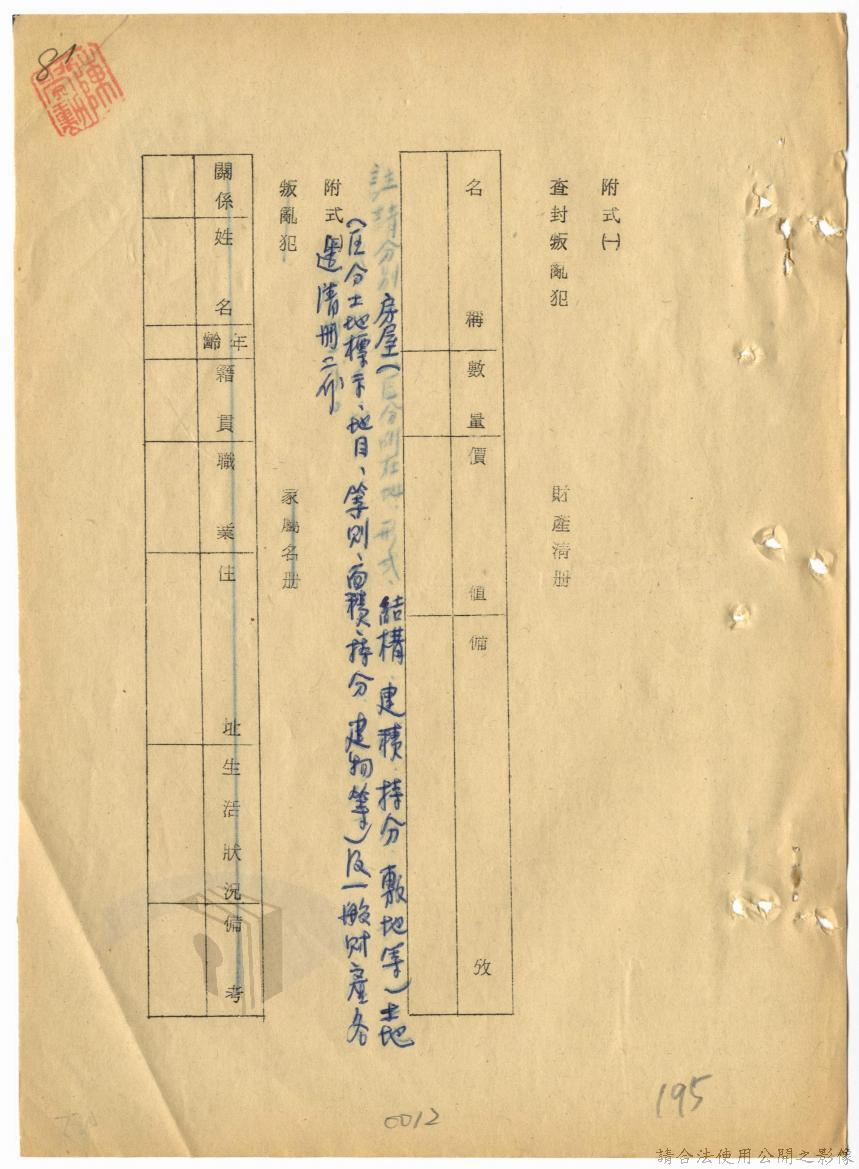 81
附式㈠
查封叛亂犯 財產清册
名稱 數量 價值 備攷
註請分別房屋(區分所在地、形式、結構、建積、持分、敷地等)土地
(區分土地標示、地目、等則、面積、持分、建物等)及一般財產各
造清册二份
附式
叛亂犯 家屬名册
關係 姓名 年齡 籍貫 職業 住址 生活狀況 備考
0012
195
請合法使用公開之影像